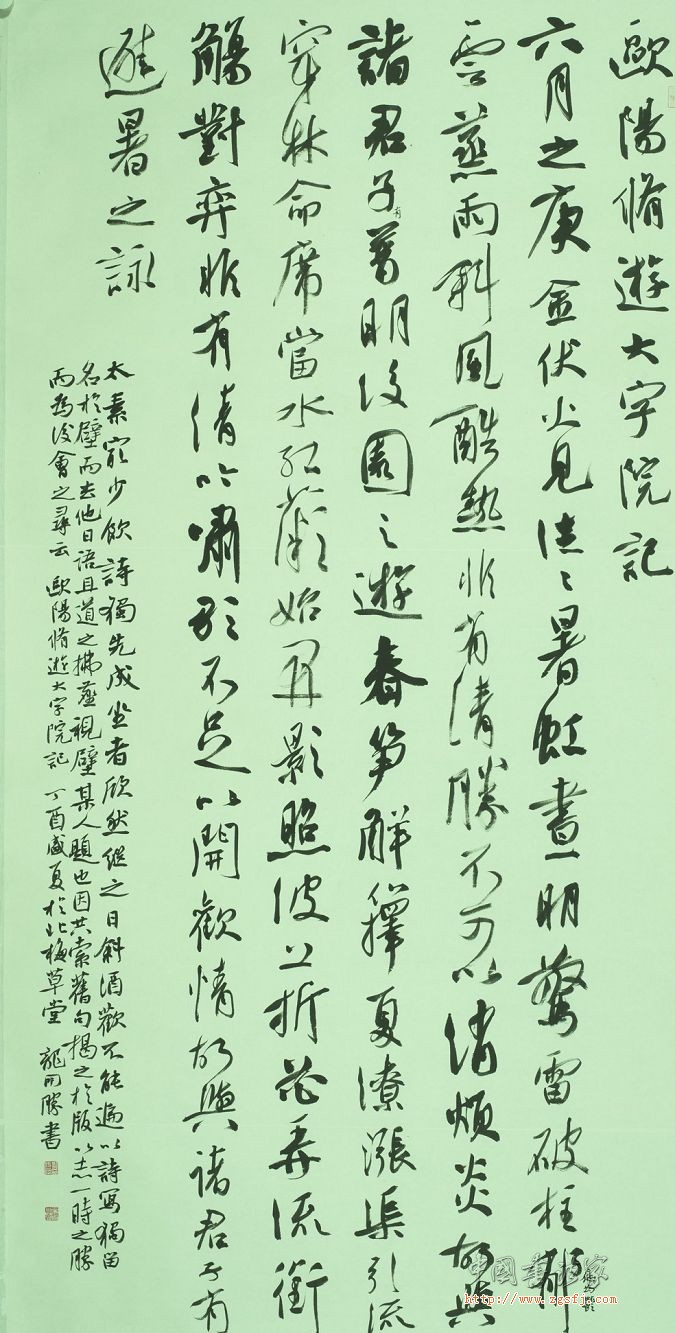 歐陽脩遊大字院記
六月之庚金伏火見往〻暑虹晝明驚雷破柱鬱
雲蒸雨斜風酷熱非有清勝不可以消煩炎故與
諸君子有普明後園之遊春筍解籜夏潦漲渠引流
穿林命席當水紅薇始開影照波上折花弄流銜
觴對弈非有清吟嘯歌不足以開歡情故與諸君子有
避暑之詠
太素最少飲詩獨先成坐者欣然繼之日斜酒歡不能遍以詩寫獨留
名於壁而去他日語且道之拂塵視壁某人題也因共索舊句揭之於版以志一時之勝
而為後會之尋云 歐陽脩遊大字院記 丁酉盛夏於北梅草堂 龍開勝書
中國書法家
http://www.zgsfj.com